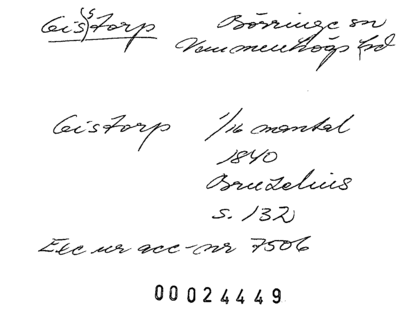 Cis(s)torp Börringe sn
Vemmenhögs hd
Cistorp 1/16 mantal
1840
Bruzelius
s. 132
Exc ur acc-nr 7506
00024449